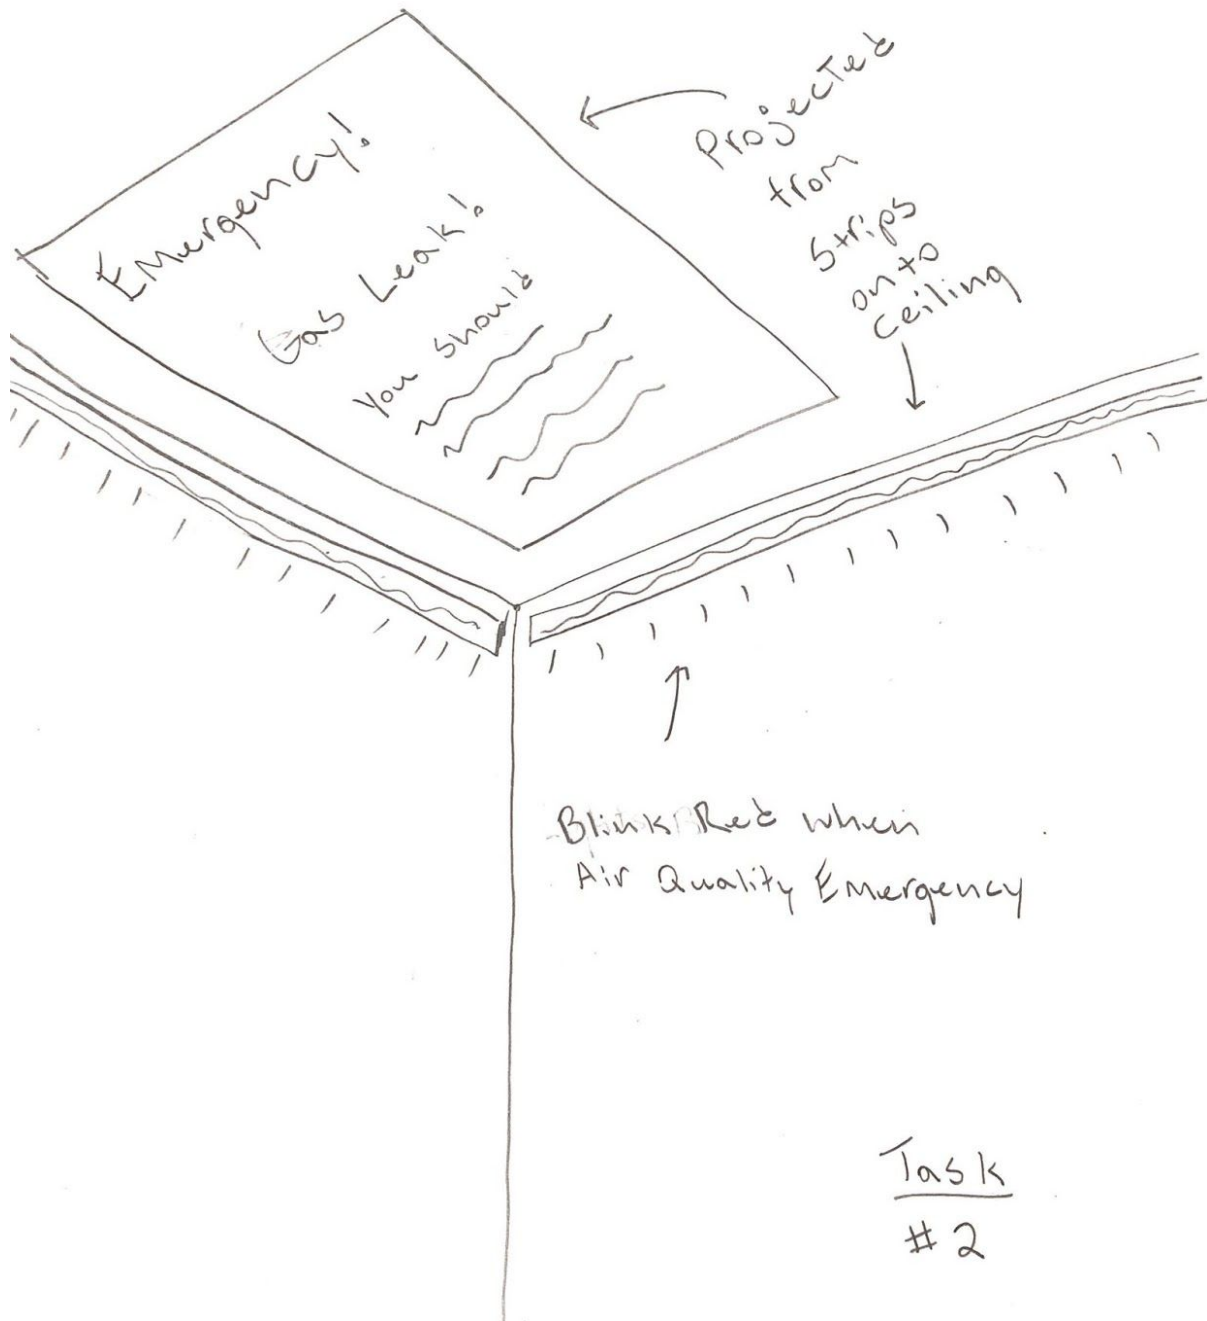 Emergency!
Gas Leak!
You should
Projected
from
Strips
onto
ceiling
Blink Red when
Air Quality Emergency
Task
#2